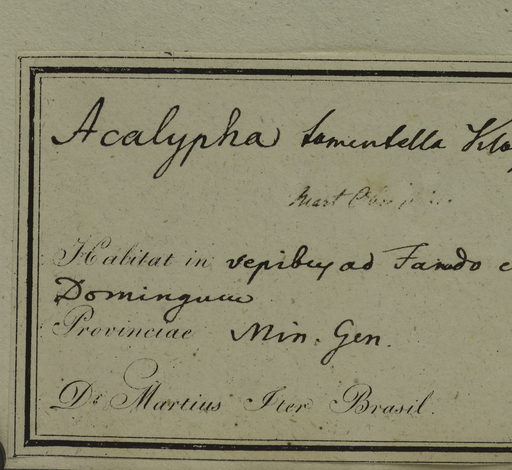 Acalypha tomentella Klo
Mart
Habitat in sepibus ad Fando
Domingum
Provinciae Min. Gen.
Dr Martius Iter Brasil.